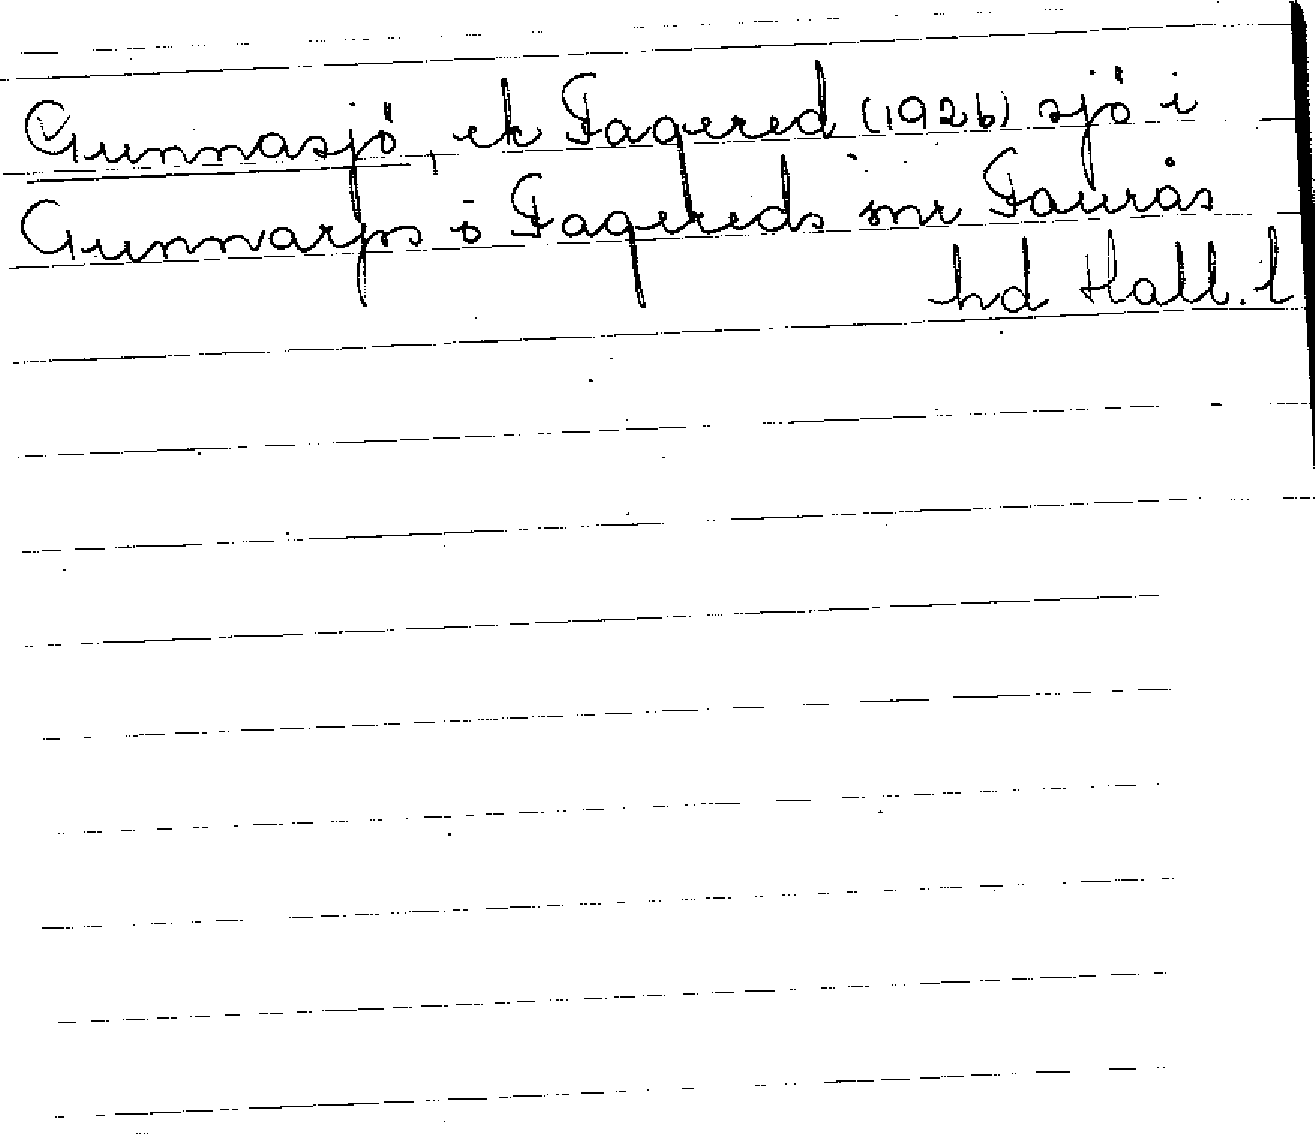 Gunnasjö, ek Fagered (1926) sjö i
Gunnarps o Fagereds snr Faurås
hd Hall. l